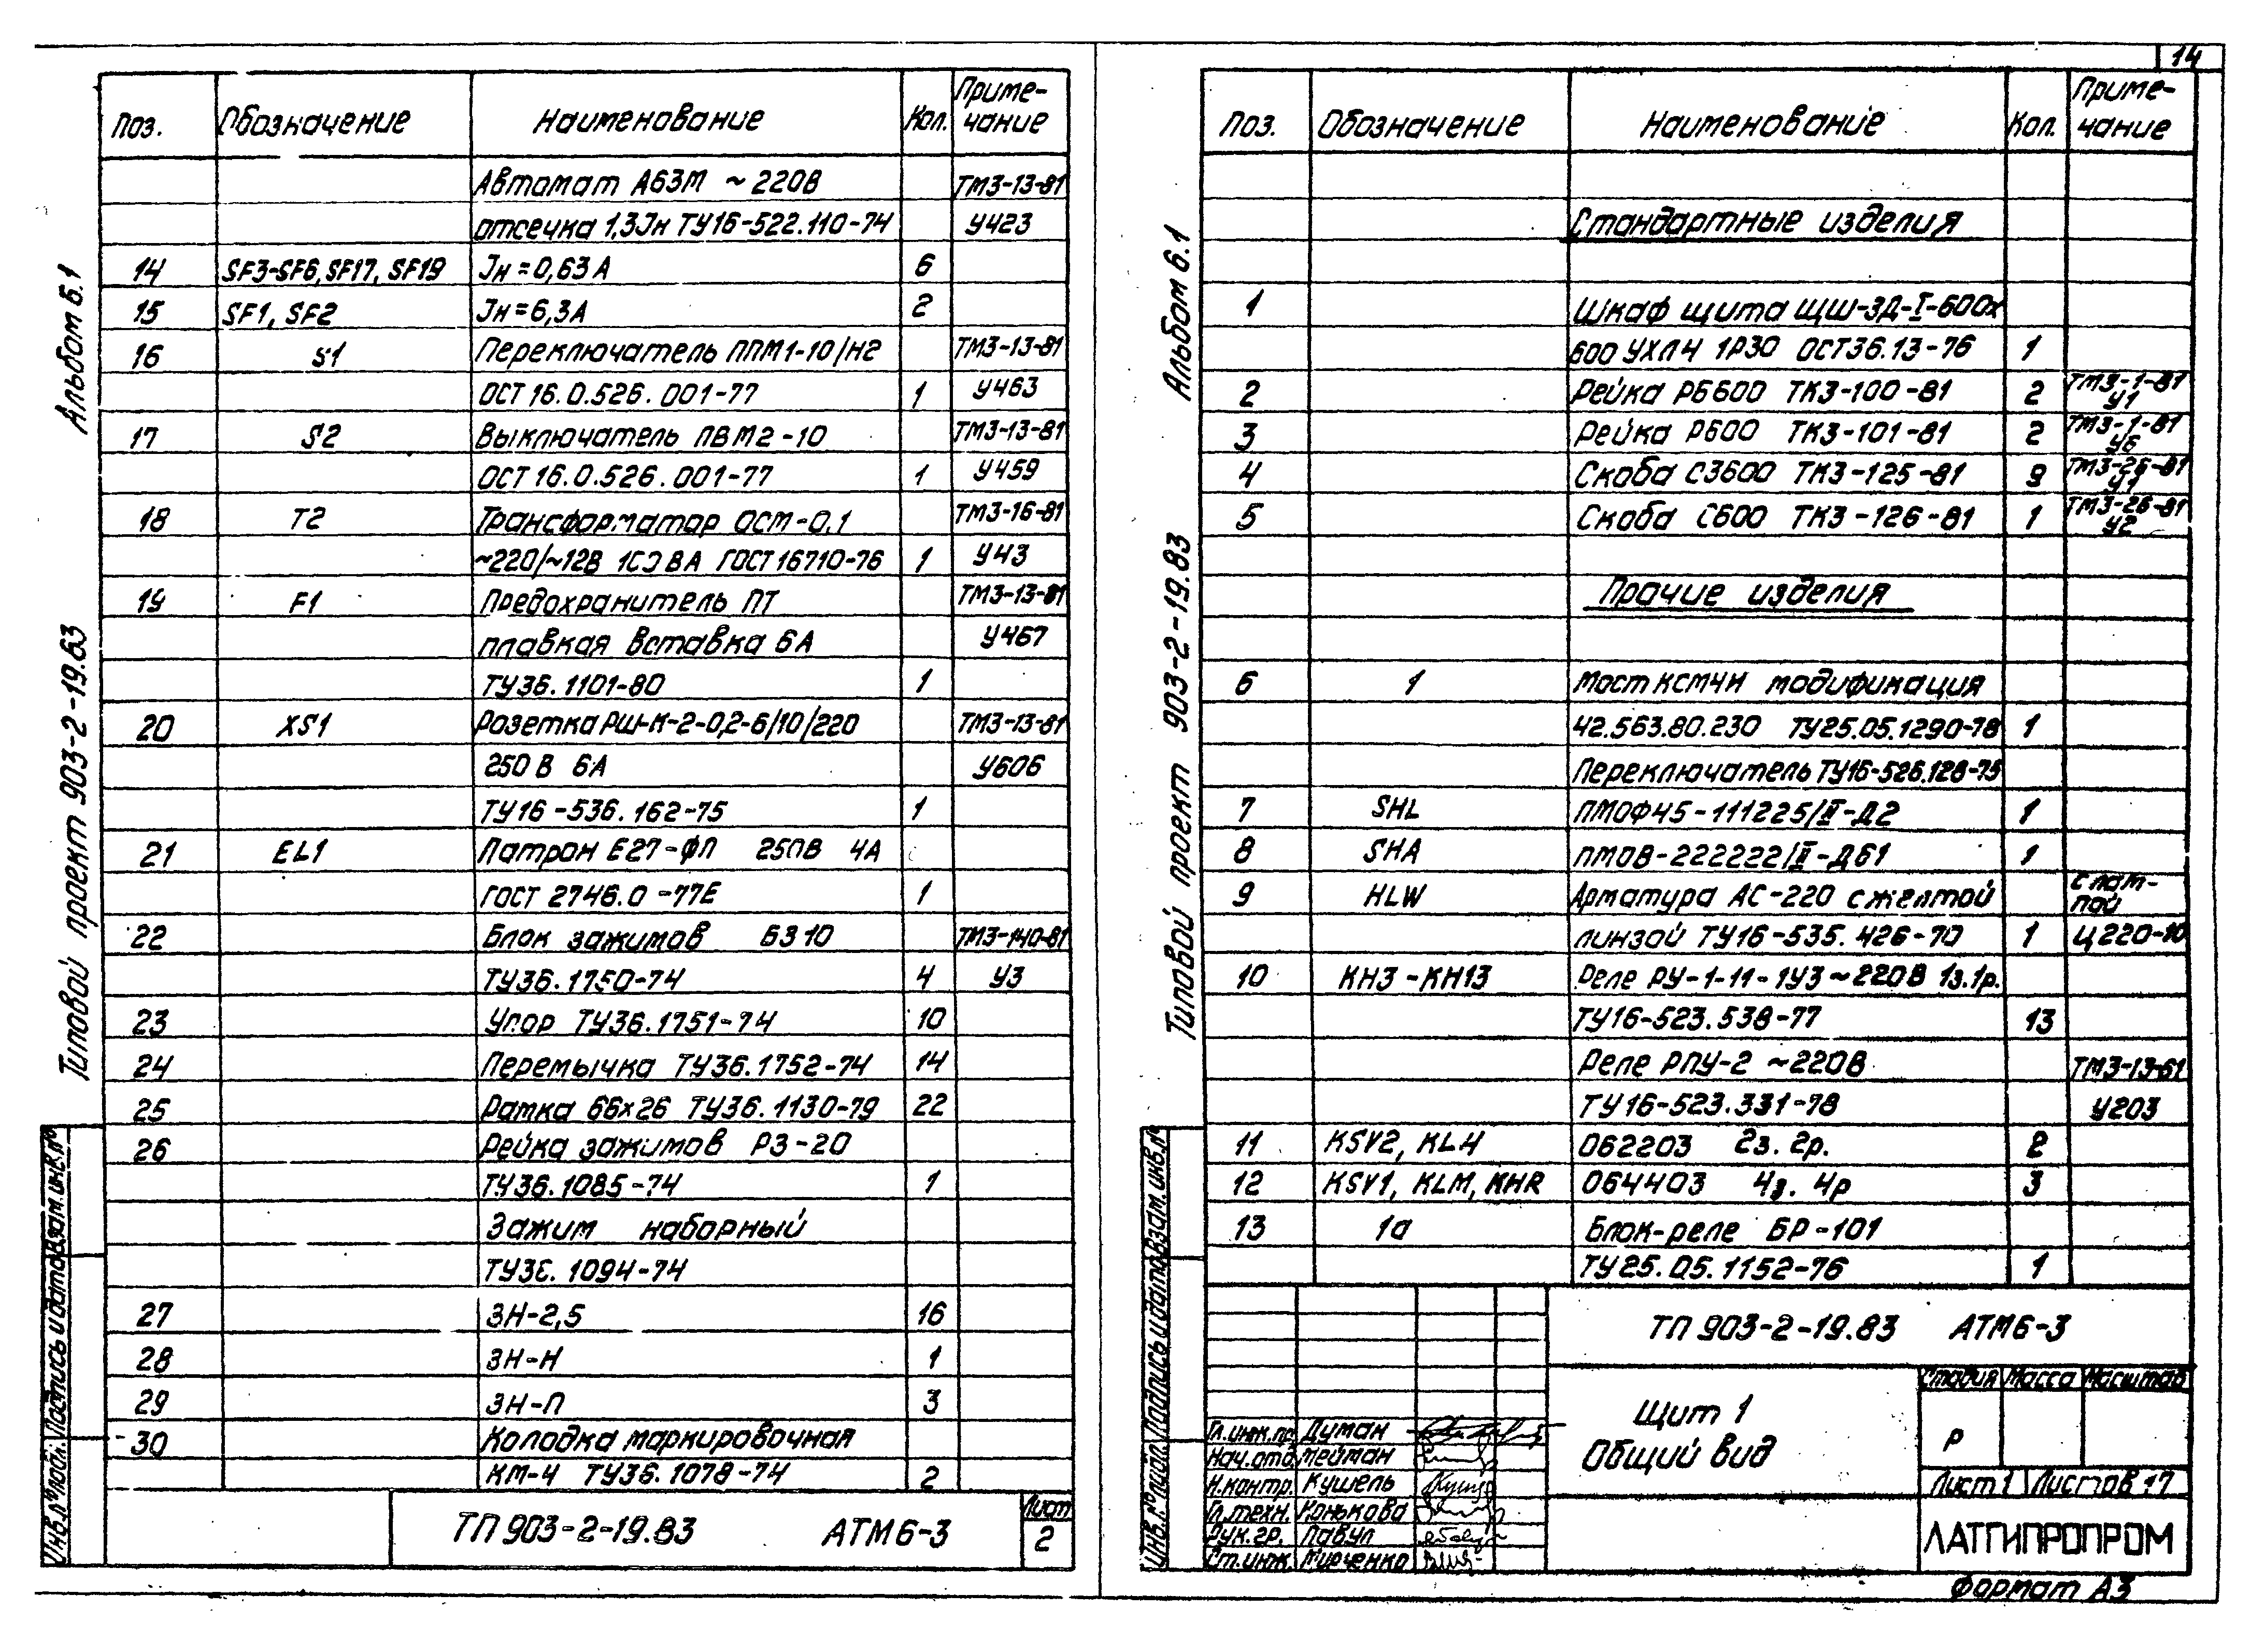 14
Альбом 6.1
Типовой проект 903-2-19.83
Поз. Обозначение Наименование Кол. Приме-
чание
Автомат А63М ~220В ТМ3-13-81
отсечка 1,3Jн ТУ16-522.110-74 У423
14 SF3-SF6, SF17, SF19 Jн=0,63А 6
15 SF1, SF2 Jн=6,3А 2
16 S1 Переключатель ППМ1-10/Н2 ТМ3-13-81
ОСТ 16.0.526.001-77 1 У463
17 S2 Выключатель ПВМ2-10 ТМ3-13-81
ОСТ 16.0.526.001-77 1 У459
18 Т2 Трансформатор ОСМ-0,1 ТМ3-16-81
~220/~12В 100 ВА ГОСТ 16710-76 1 У43
19 F1 Предохранитель ПТ ТМ3-13-81
плавкая вставка 6А У467
ТУ36.1101-80 1
20 XS1 Розетка РШ-К-2-0,2-6/10/220 ТМ3-13-81
250 В 6А У606
ТУ16-536.162-75 1
21 EL1 Патрон Е27-ФП 250В 4А
ГОСТ 2746.0-77Е 1
22 Блок зажимов БЗ10 ТМ3-140-81
ТУ36.1750-74 4 У3
23 Упор ТУ36.1751-74 10
24 Перемычка ТУ36.1752-74 14
25 Рамка 66х26 ТУ36.1130-79 22
26 Рейка зажимов РЗ-20
ТУ36.1085-74 1
Зажим наборный
ТУ36.1094-74
27 ЗН-2,5 16
28 ЗН-Н 1
29 ЗН-П 3
30 Колодка маркировочная
КМ-4 ТУ36.1078-74 2
ТП 903-2-19.83 АТМ6-3 Лист
2
Инв.№ подл. Подпись и дата Взам.инв.№
Альбом 6.1
Типовой проект 903-2-19.83
Поз. Обозначение Наименование Кол. Приме-
чание
Стандартные изделия
1 Шкаф щита ЩШ-ЗД-I-600х
600 УХЛ4 1Р30 ОСТ36.13-76 1
2 Рейка РБ600 ТК3-100-81 2 ТМ3-1-81
У1
3 Рейка Р600 ТК3-101-81 2 ТМ3-1-81
У6
4 Скоба С3600 ТК3-125-81 9 ТМ3-26-81
У1
5 Скоба С600 ТК3-126-81 1 ТМ3-26-81
У2
Прочие изделия
6 1 Мост КСМ4И модификация
42.563.80.230 ТУ25.05.1290-78 1
Переключатель ТУ16-526.128-75
7 SHL ПМОФ45-111225/II-Д2 1
8 SHA ПМОВ-222222/II-Д61 1
9 HLW Арматура АС-220 с желтой с лам-
пой
линзой ТУ16-535.426-70 1 Ц220-10
10 КН3-КН13 Реле РУ-1-11-1У3 ~220В 1з.1р.
ТУ16-523.538-77 13
Реле РПУ-2 ~220В ТМ3-13-81
ТУ16-523.331-78 У203
11 KSV2, KL4 062203 2з. 2р. 2
12 KSV1, KLM, KHR 064403 4з. 4р 3
13 1а Блок-реле БР-101
ТУ25.05.1152-76 1
ТП 903-2-19.83 АТМ6-3
Щит 1
Общий вид
Стадия Масса Масштаб
Р
Лист 1 Листов 17
ЛАТГИПРОПРОМ
Гл.инж.пр. Думан
Нач.отд. Мейман
Н.контр. Кушель
Гл.техн. Конькова
Рук.гр. Павул
Ст.инж.
Инв.№ подл. Подпись и дата Взам.инв.№
Формат А3